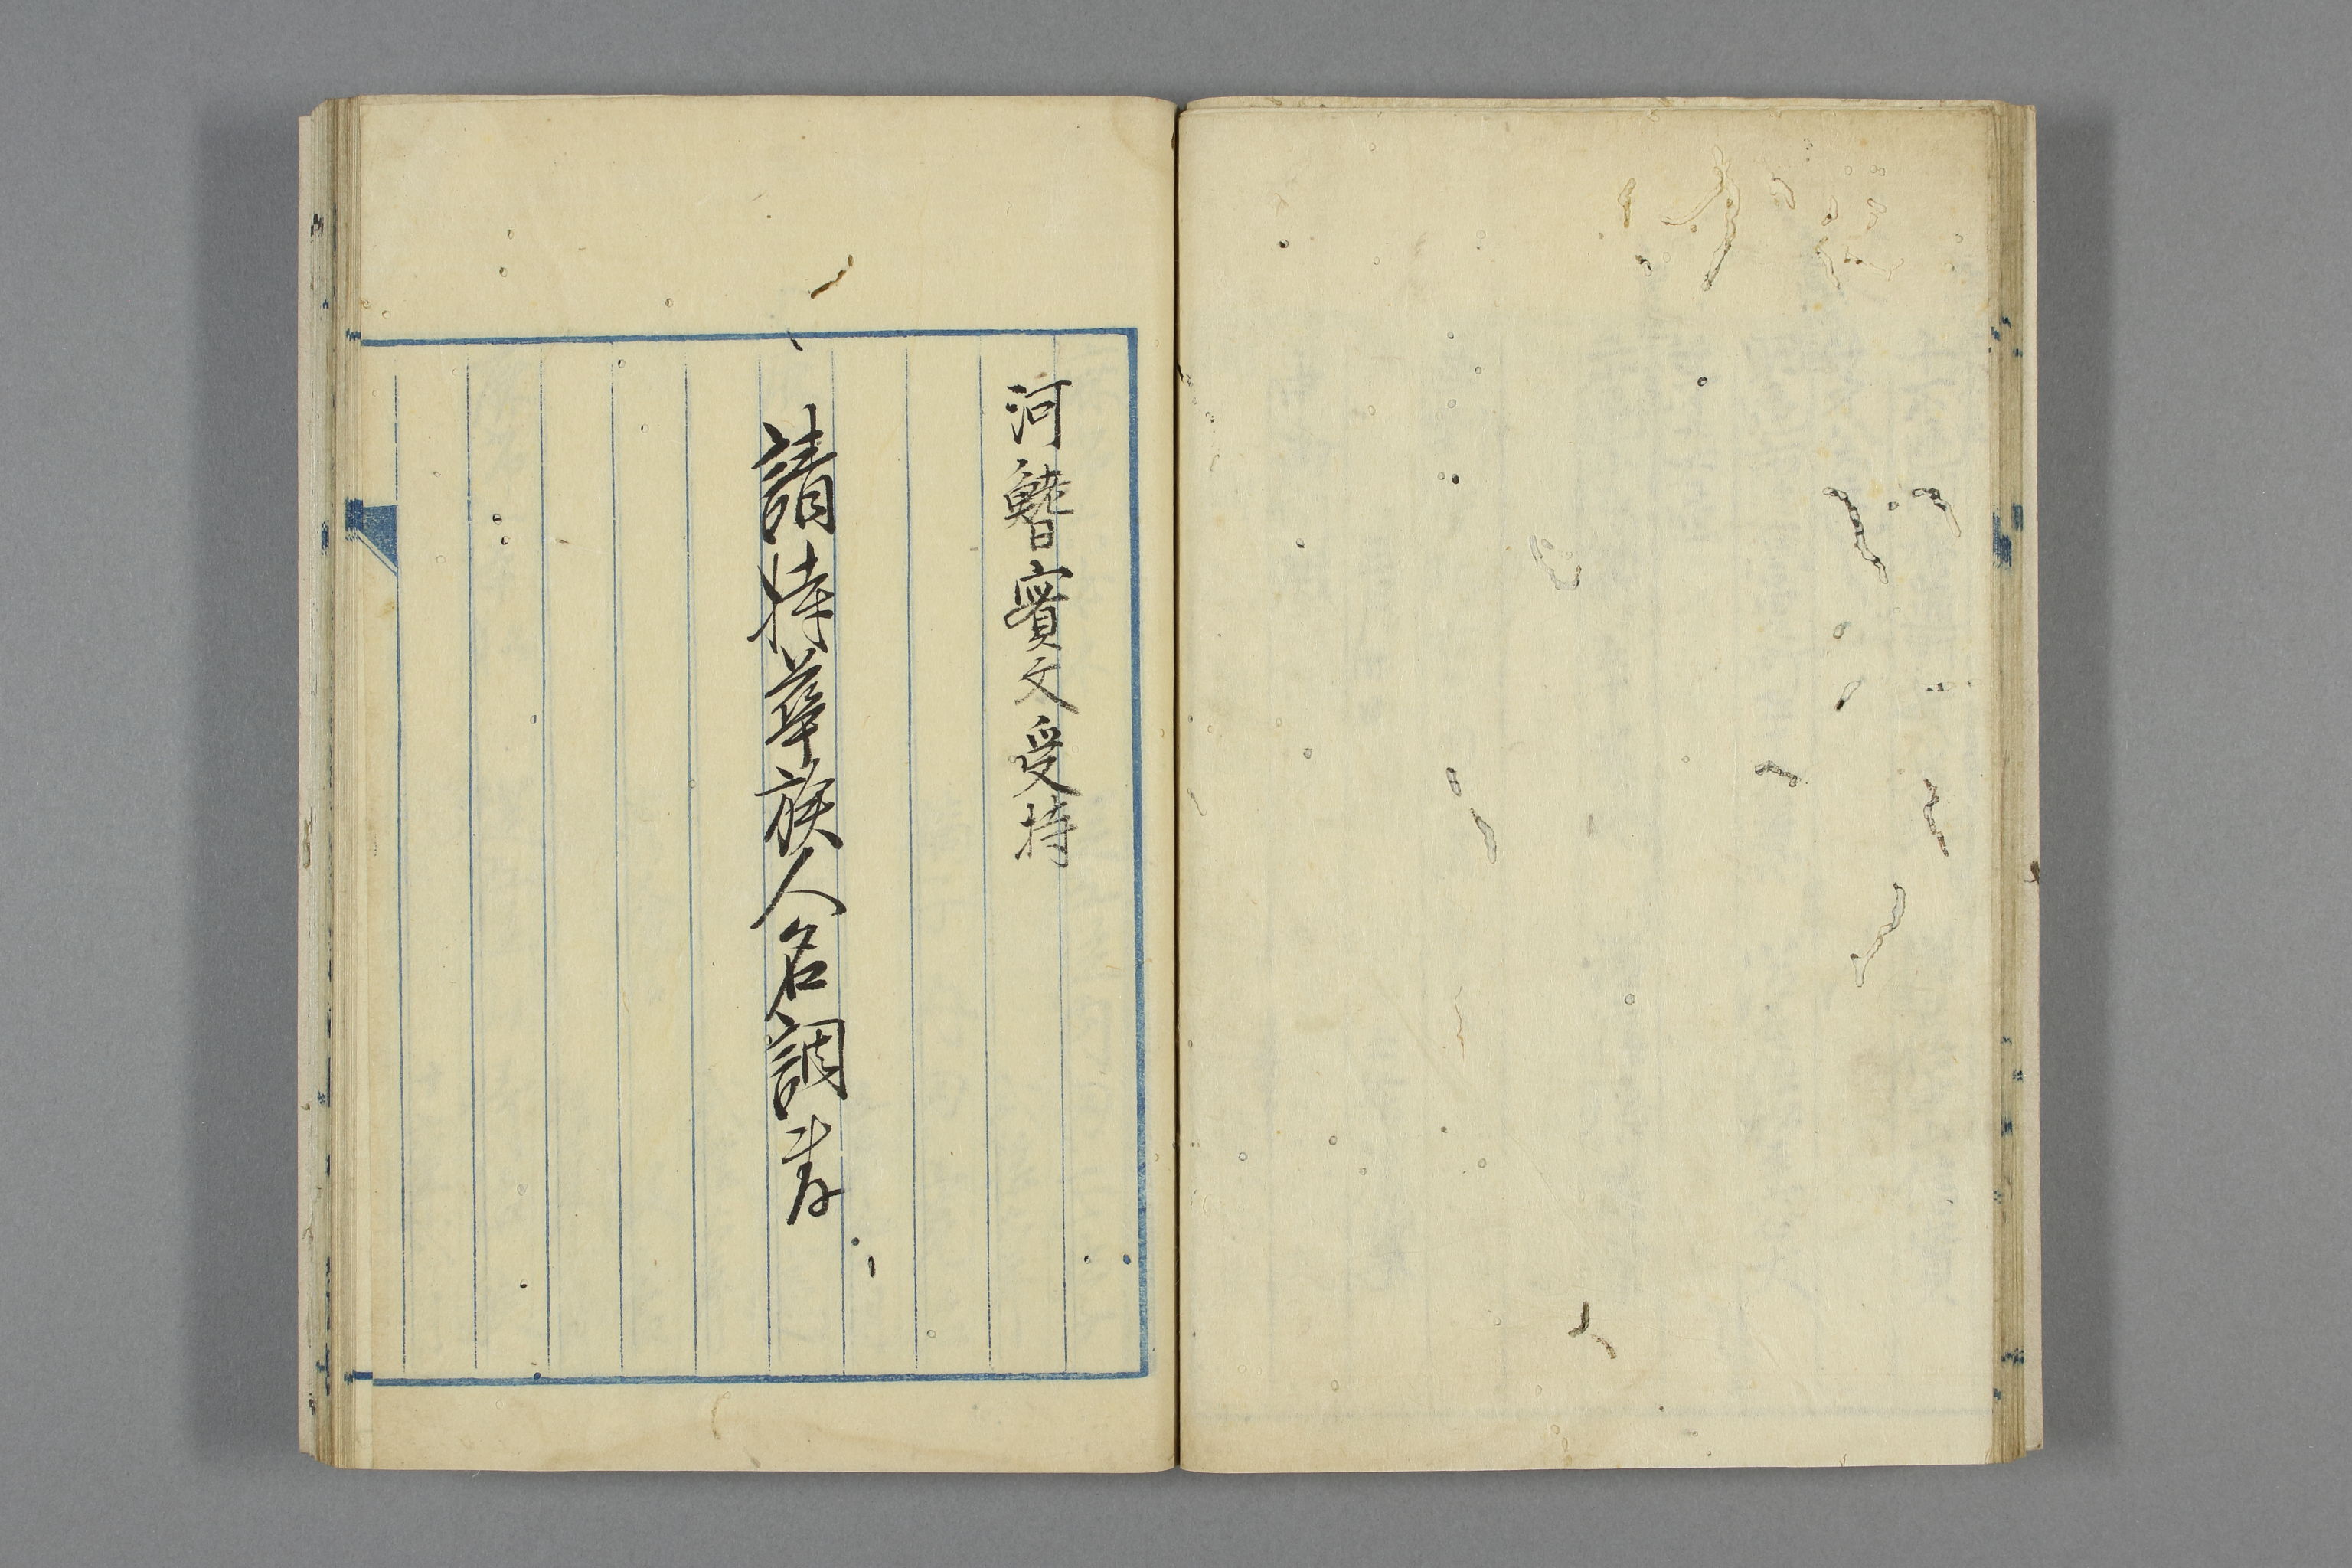 河鰭實文受持
請持華族人名調書